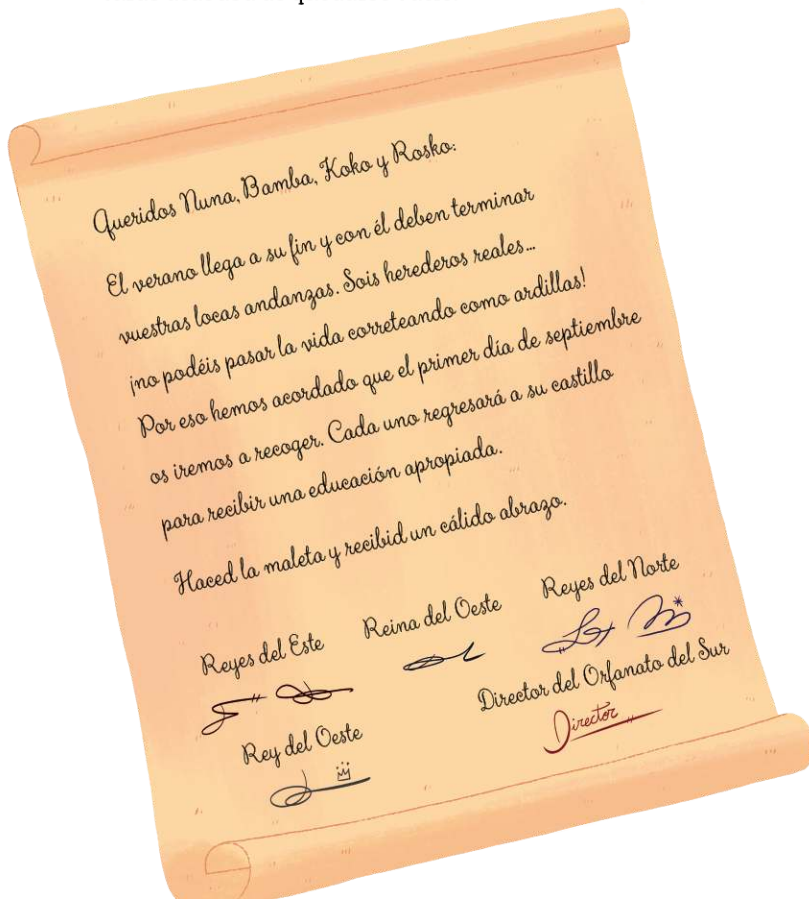 Queridos Nuna, Bamba, Koko y Rosko:
El verano llega a su fin y con él deben terminar
vuestras locas andanzas. Sois herederos reales...
¡no podéis pasar la vida correteando como ardillas!
Por eso hemos acordado que el primer día de septiembre
os iremos a recoger. Cada uno regresará a su castillo
para recibir una educación apropiada.
Haced la maleta y recibid un cálido abrazo.
Reyes del Este
Reina del Oeste
Reyes del Norte
Rey del Oeste
Director del Orfanato del Sur
Director